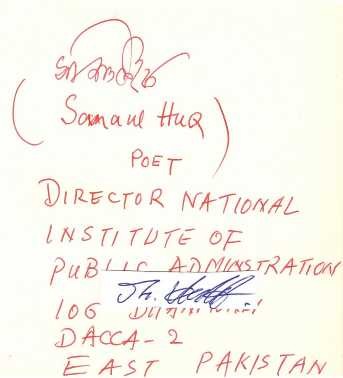 (Sanaul Huq)
POET
DIRECTOR NATIONAL
INSTITUTE OF
PUBLIC ADMINSTRATION
106
DACCA-2
EAST PAKISTAN